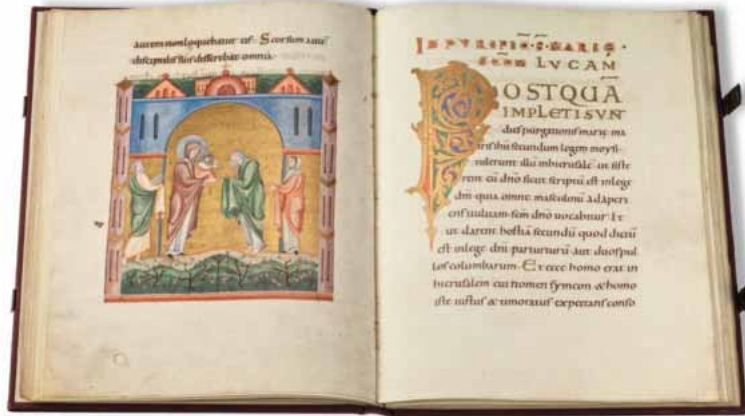 autem non loquebatur eis· Seorsum autē
discipulis suis differebat omnia.
IN PURIFIC̄·S̄·MARIĘ·
SCDM LVCAM
POSTQUĀ
IMPLETI SVN
dies purgationis marię ma
tris ihū secundum legem moysi
tulerunt illū in hierusalē ut siste
rent cū dn̄o sicut scriptū est in lege
dn̄i quia omne masculinū adaperi
ens uuluam scm̄ dn̄o uocabitur· Et
ut darent hostiā secundū quod dictū
est in lege dn̄i par turturū aut duos pul
los columbarum· Et ecce homo erat in
hierusalem cui nomen symeon & homo
iste iustus & timoratus expectans conso